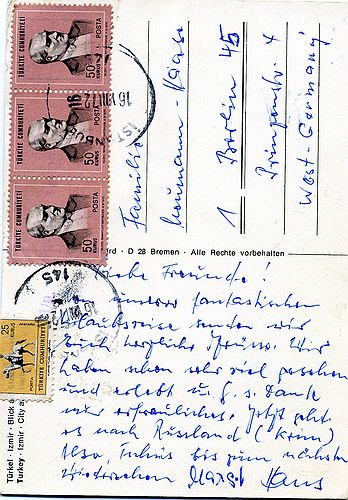 TÜRKİYE CUMHURİYETİ
50
KURUŞ
POSTA
TÜRKİYE CUMHURİYETİ
50
KURUŞ
POSTA
TÜRKİYE CUMHURİYETİ
50
KURUŞ
POSTA
16 VIII 72
Familie
Neumann - Kaase
1 Berlin 45
Prinzenstr. 4
West-Germany
D 28 Bremen · Alle Rechte vorbehalten
145
25
ANKARA
POSTA
TÜRKİYE CUMHURİYETİ
Türkei · Izmir · Blick a
Turkey · Izmir · City a
Liebe Freunde!
Von unserer fantastischen
Urlaubsreise senden wir
Euch herzliche Grüsse. Wir
haben schon sehr viel gesehen
und erlebt u. G. s. Dank
nur erfreuliches. Jetzt geht
es nach Russland (Krim)
Also, tschüs bis zum nächsten
Wiedersehen Hans